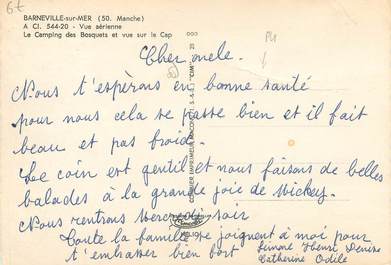 6t
BARNEVILLE-sur-MER (50. Manche)
A CI. 544-20 - Vue aérienne
Le Camping des Bosquets et vue sur le Cap
Cher
Nous t'espérons en bonne santé
pour nous cela se passe bien et il fait
beau et pas froid.
Le coin est gentil et nous faisons de belles
balades à la grande joie de Mickey.
Nous rentrons Mercredi soir
Toute la famille se joignent à moi pour
t'embrasser bien fort
Simone Henri Denise
Catherine Odile
COMBIER IMPRIMEUR MACON
CIM